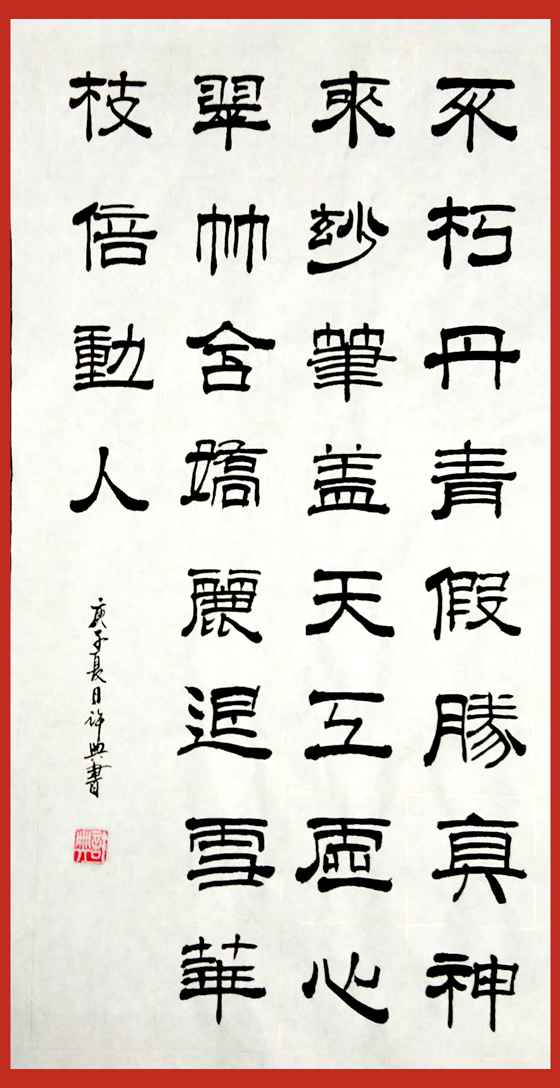 不朽丹青假勝真神
來玅筆盖天工虛心
翠竹含嬌麗退雪華
枝倍動人
庚子夏日許典書
許典